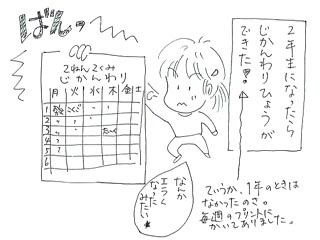 ばんっ
2年生になったら
じかんわりひょうが
できた!!
2ねん2くみ
じかんわり
月 火 水 木 金 土
1 こくご 〃 〃
2 〃 〃 〃
3 〃 〃 たいく
4 〃 ?
5 ?
6
なんか
エラく
なった
みたい★
ていうか、1年のときは
なかったのさ。
毎週のプリントに
かいてありました。